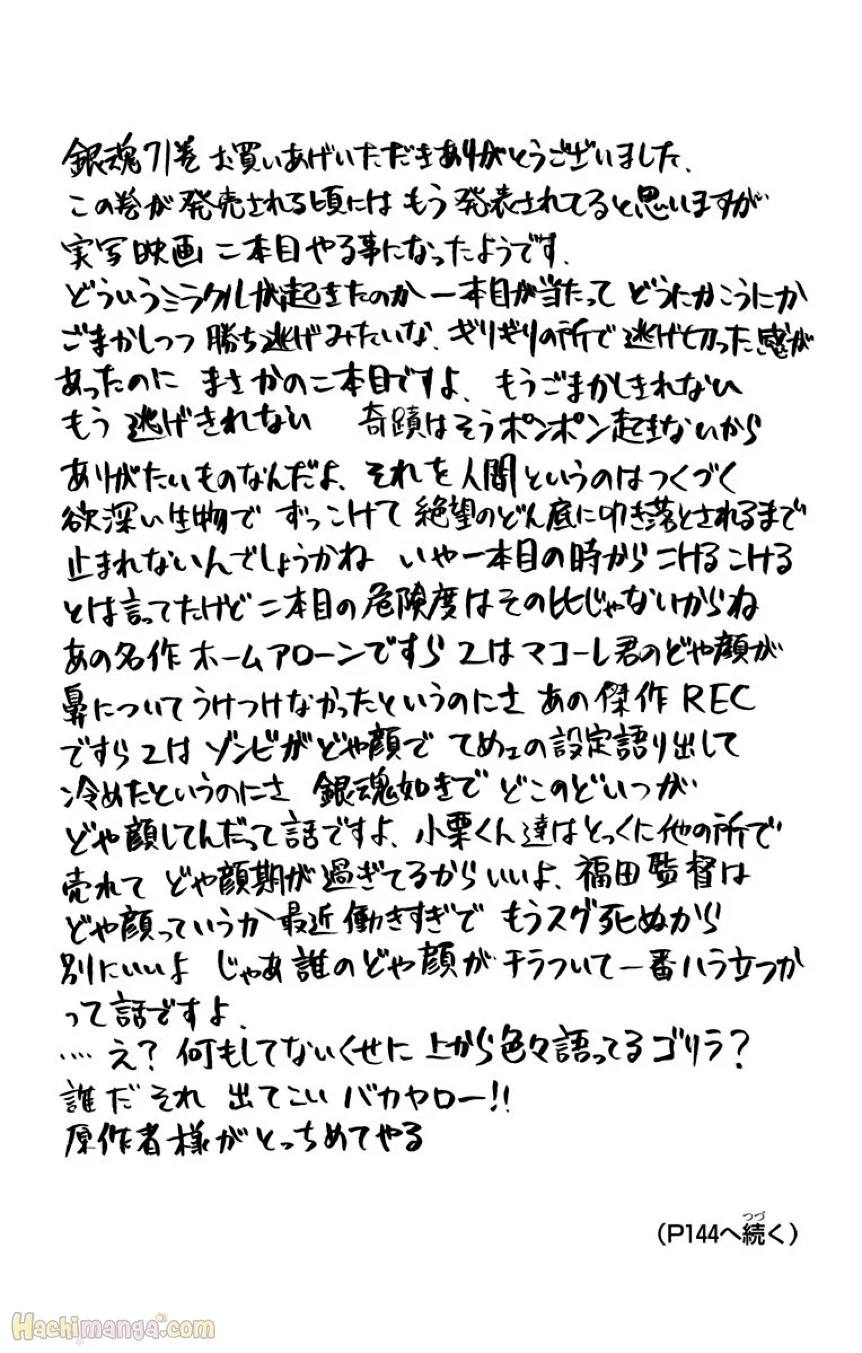 銀魂71巻 お買いあげいただきありがとうございました、
この巻が発売される頃には もう発表されてると思いますが
実写映画二本目やる事になったようです、
どういうミラクルが起きたのか一本目が当たって どうにかこうにか
ごまかしつつ勝ち逃げみたいな、ぎりぎりの所で逃げ切った感が
あったのに まさかの二本目ですよ、もうごまかしきれない
もう逃げきれない 奇蹟はそうポンポン起きないから
ありがたいものなんだよ、それを人間というのはつくづく
欲深い生物で ずっこけて絶望のどん底に叩き落とされるまで
止まれないんでしょうかね いや一本目の時からこけるこける
とは言ってたけど二本目の危険度はその比じゃないからね
あの名作ホームアローンですら2はマコーレ君のどや顔が
鼻についてうけつけなかったというのにさ あの傑作REC
ですら2は ゾンビがどや顔で てめェの設定語り出して
冷めたというのにさ 銀魂如きで どこのどいつが
どや顔してんだって話ですよ、小栗くん達はとっくに他の所で
売れて どや顔期が過ぎてるからいいよ、福田監督は
どや顔っていうか最近働きすぎで もうスグ死ぬから
別にいいよ じゃあ誰のどや顔がチラついて一番ハラ立つか
って話ですよ、
…. え? 何もしてないくせに 上から色々語ってるゴリラ?
誰だ それ 出てこい バカヤロー!!
原作者様がとっちめてやる
(P144へ続く)
つづ
Hachimanga.com